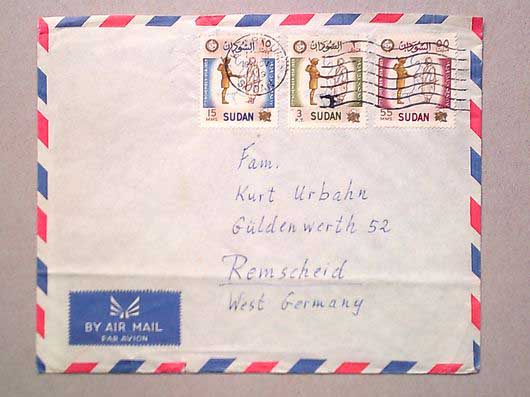 السودان ١٥
السودان
السودان ٥٥
15 MMS SUDAN
3 P.T. SUDAN
55 MMS SUDAN
Fam.
Kurt Urbahn
Güldenwerth 52
Remscheid
West Germany
BY AIR MAIL
PAR AVION